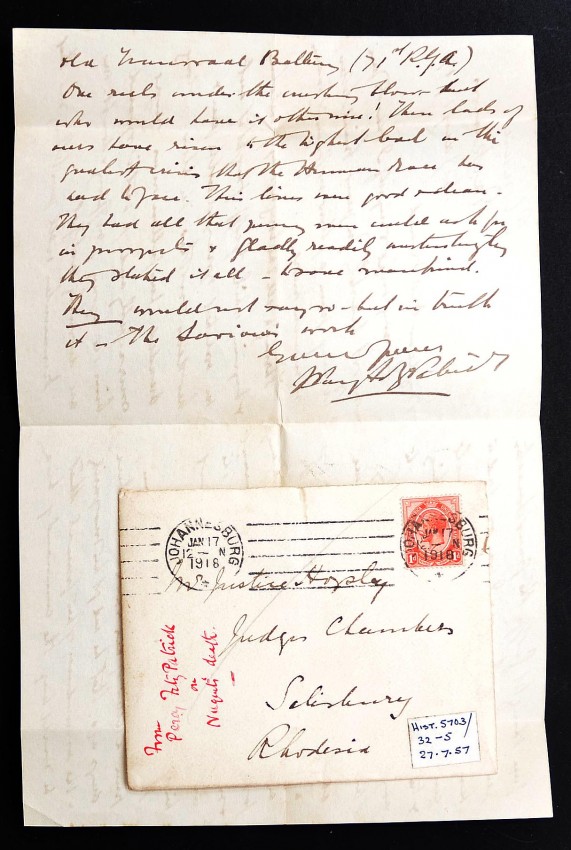 old Transvaal Battery (71st R.G.A.)
One reels under the crushing blow - but
who would have it otherwise! These lads of
ours have risen to the highest level in the
greatest crisis that the Human race has
had to face. Their lives were good & clean -
They had all that young men could ask for
in prospects & gladly readily unstintingly
they staked it all - to save mankind.
They would not say so - but in truth
it - The Saviour's work
Yours
Percy FitzPatrick
JOHANNESBURG
JAN 17
12 - N
1918
JOHANNESBURG
JAN 17
N
1918
1D
Mr Justice Hopley
Judges Chambers
Salisbury
Rhodesia
From
Percy FitzPatrick
on
Nugent's death.
HIST. 5703/
32-5
27.7.57